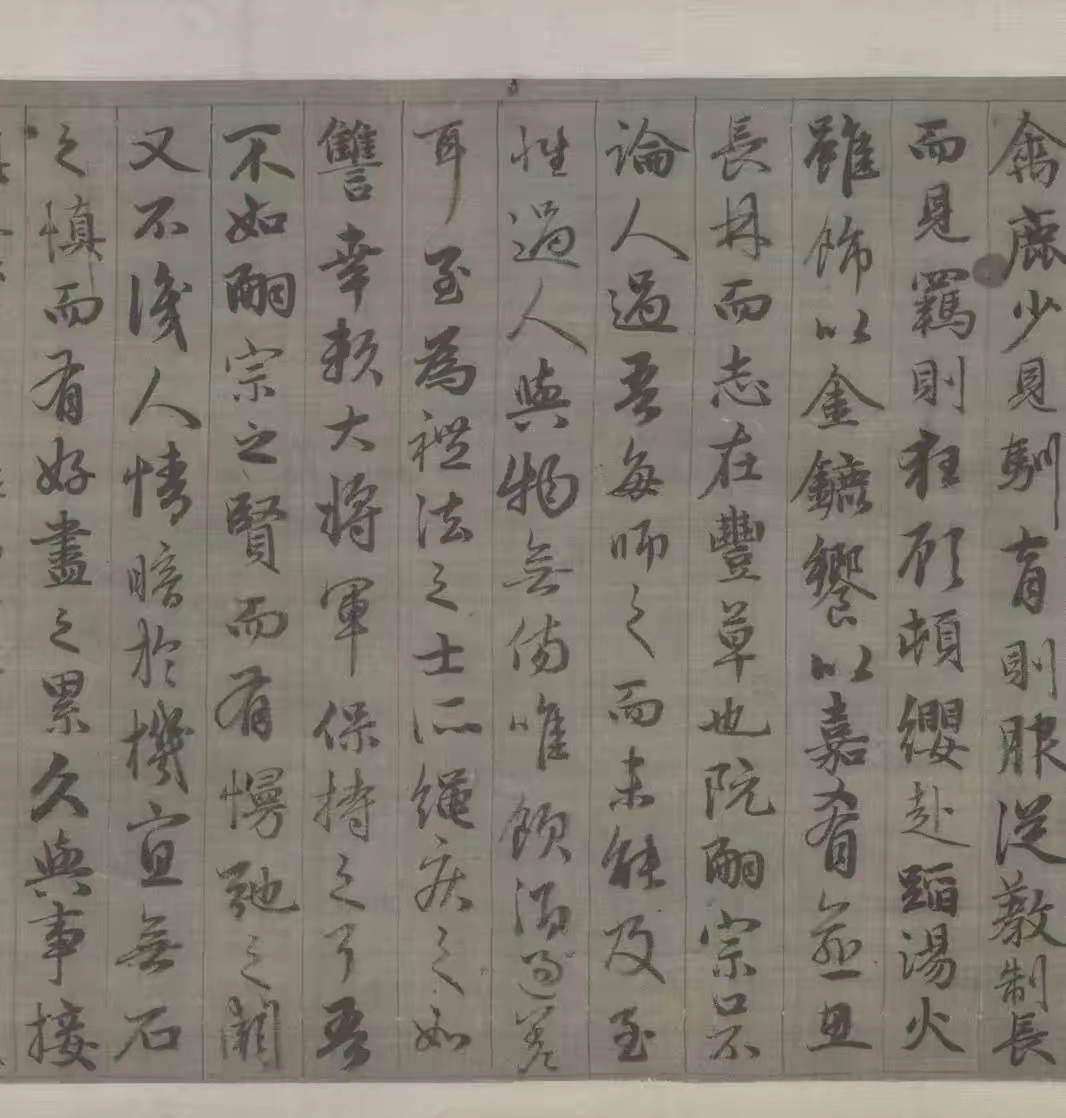 禽鹿少見馴育則服從教制長
而見羈則狂顧頓纓赴蹈湯火
雖飾以金鑣饗以嘉肴逾思
長林而志在豐草也阮嗣宗口不
論人過吾每師之而未能及至
性過人與物無傷唯飲酒過差
耳至為禮法之士所繩疾之如
讐幸賴大將軍保持之耳吾
不如嗣宗之賢而有慢弛之闕
又不識人情暗於機宜無石
之慎而有好盡之累久與事接